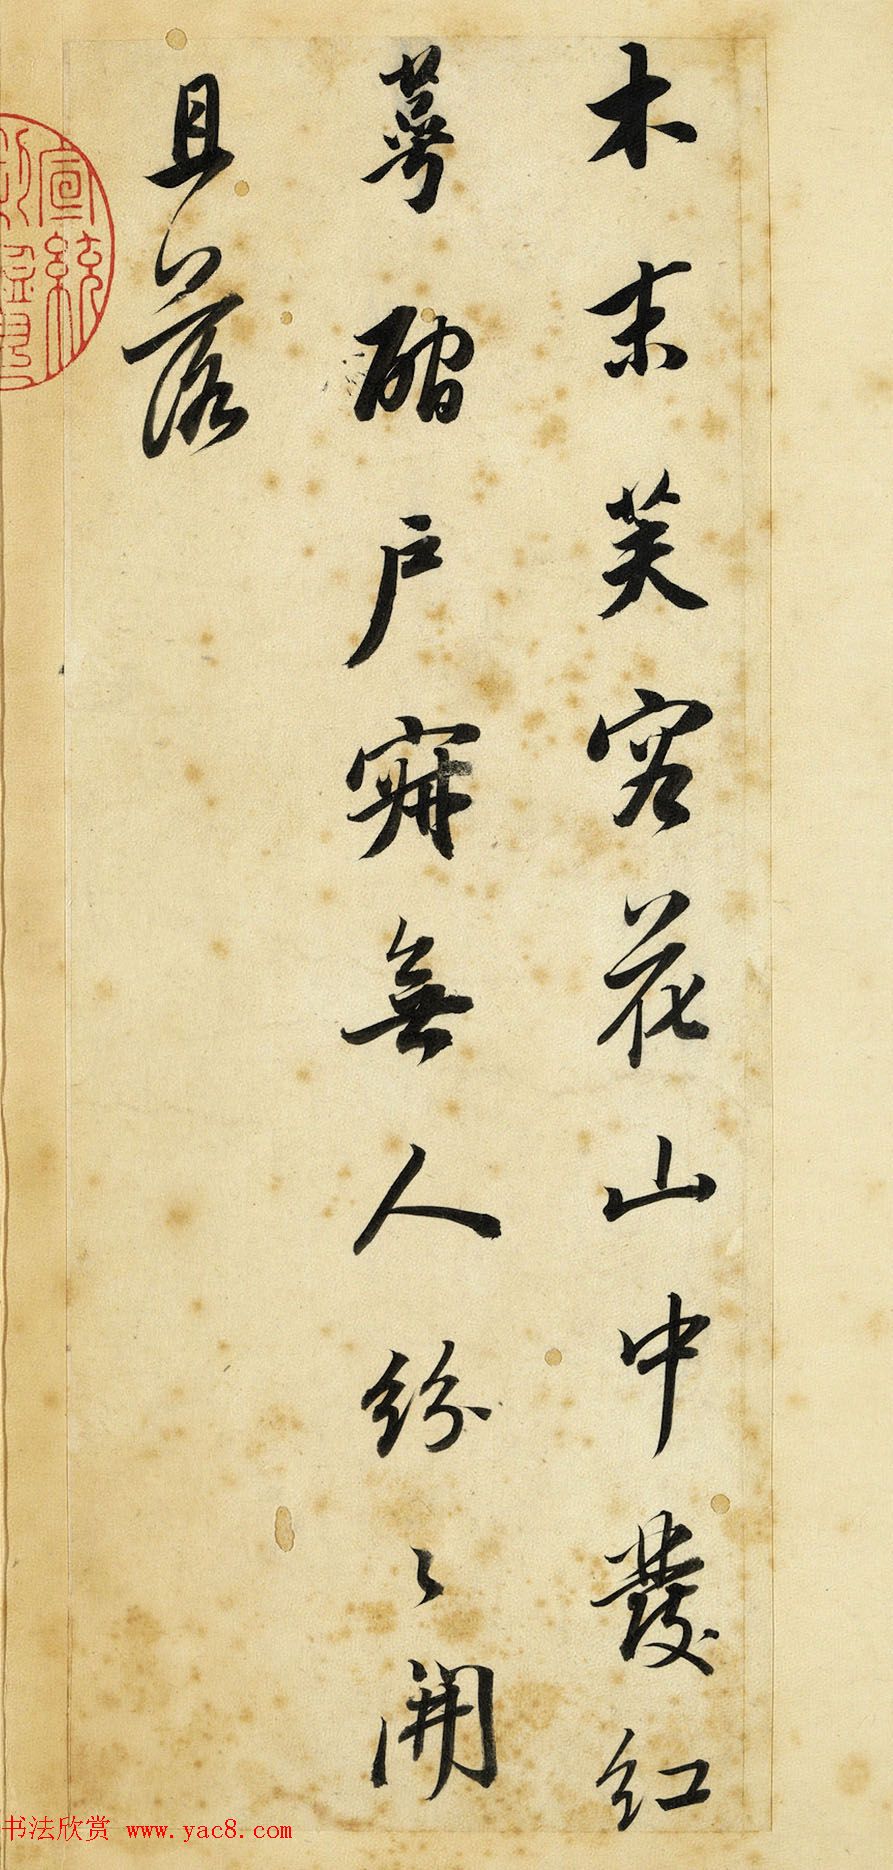 木末芙容花山中發紅
萼磵户寂無人紛〻開
且落
宣統
书法欣赏 www.yac8.com